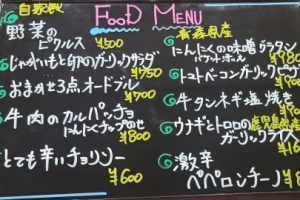 FOOD MENU
自家製
野菜の
ピクルス ¥500
じゃがいもと卵のガーリックサラダ
¥750
おまかせ3点オードブル
¥700
牛肉のカルパッチョ
にんにくチップのせ
¥800
とても辛いチョリソー
¥600
青森県産
にんにくの味噌グラタン
バケットホイル
トマトベーコンガーリック
牛タンネギ塩焼き
ウナギとトロロの
ガーリックライス
激辛
ペペロンチーノ